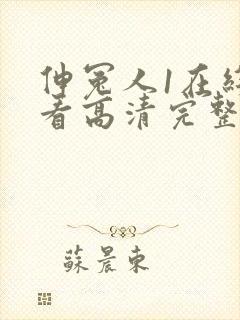 伸冤人1在线
看高清完整
蘇晨東